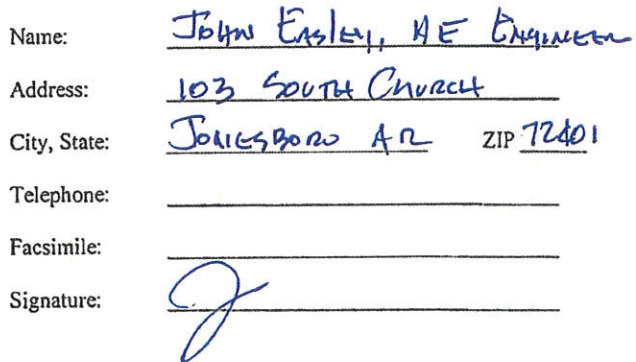 Name: John Easley, AE Engineer
Address: 103 South Church
City, State: Jonesboro AR ZIP 72401
Telephone:
Facsimile:
Signature: